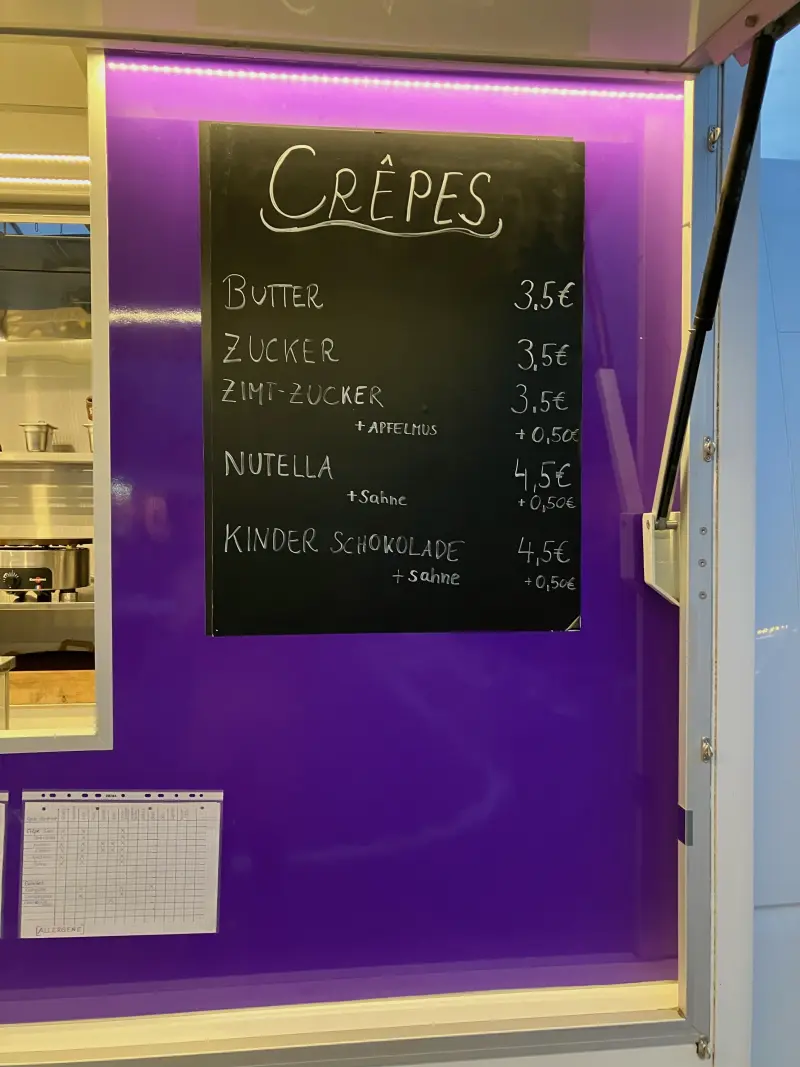 CRÊPES
BUTTER 3.5€
ZUCKER 3,5€
ZIMT-ZUCKER 3.5€
+ APFELMUS + 0,50€
NUTELLA 4,5€
+ Sahne + 0,50€
KINDER SCHOKOLADE 4,5€
+ sahne + 0,50€
ALLERGENE